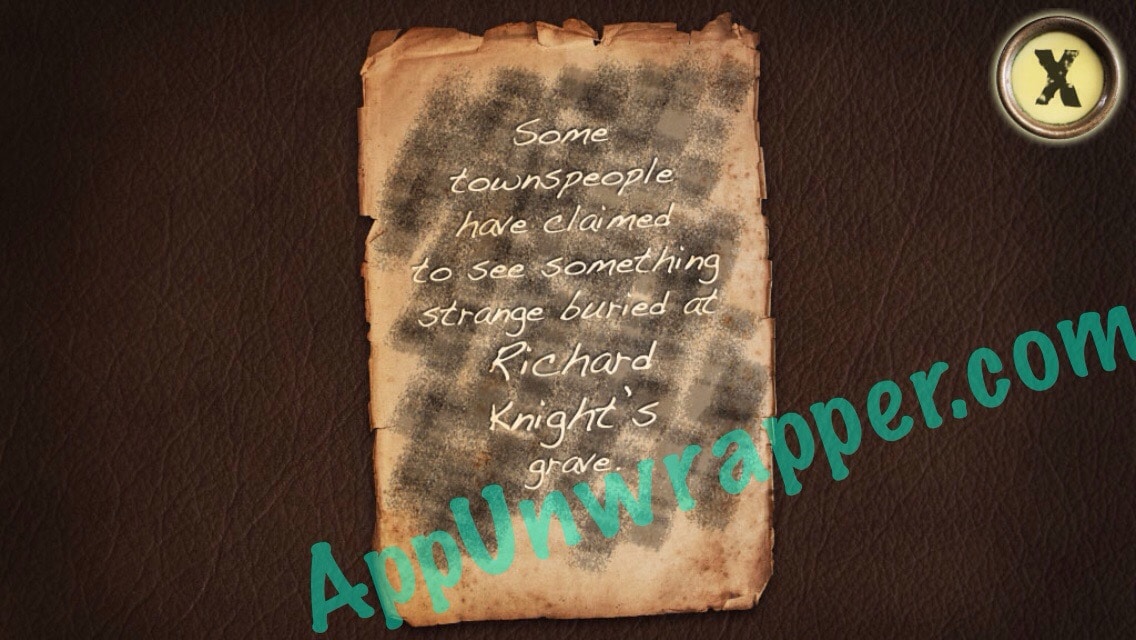 Some
townspeople
have claimed
to see something
strange buried at
Richard
Knight's
grave.
X
AppUnwrapper.com